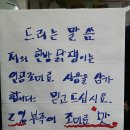 드리는 말씀
저희 한방 닭갱이는
인공조미료 사용을 않아
합니다. 믿고 드십시요.
2% 부족이 조미료 맛